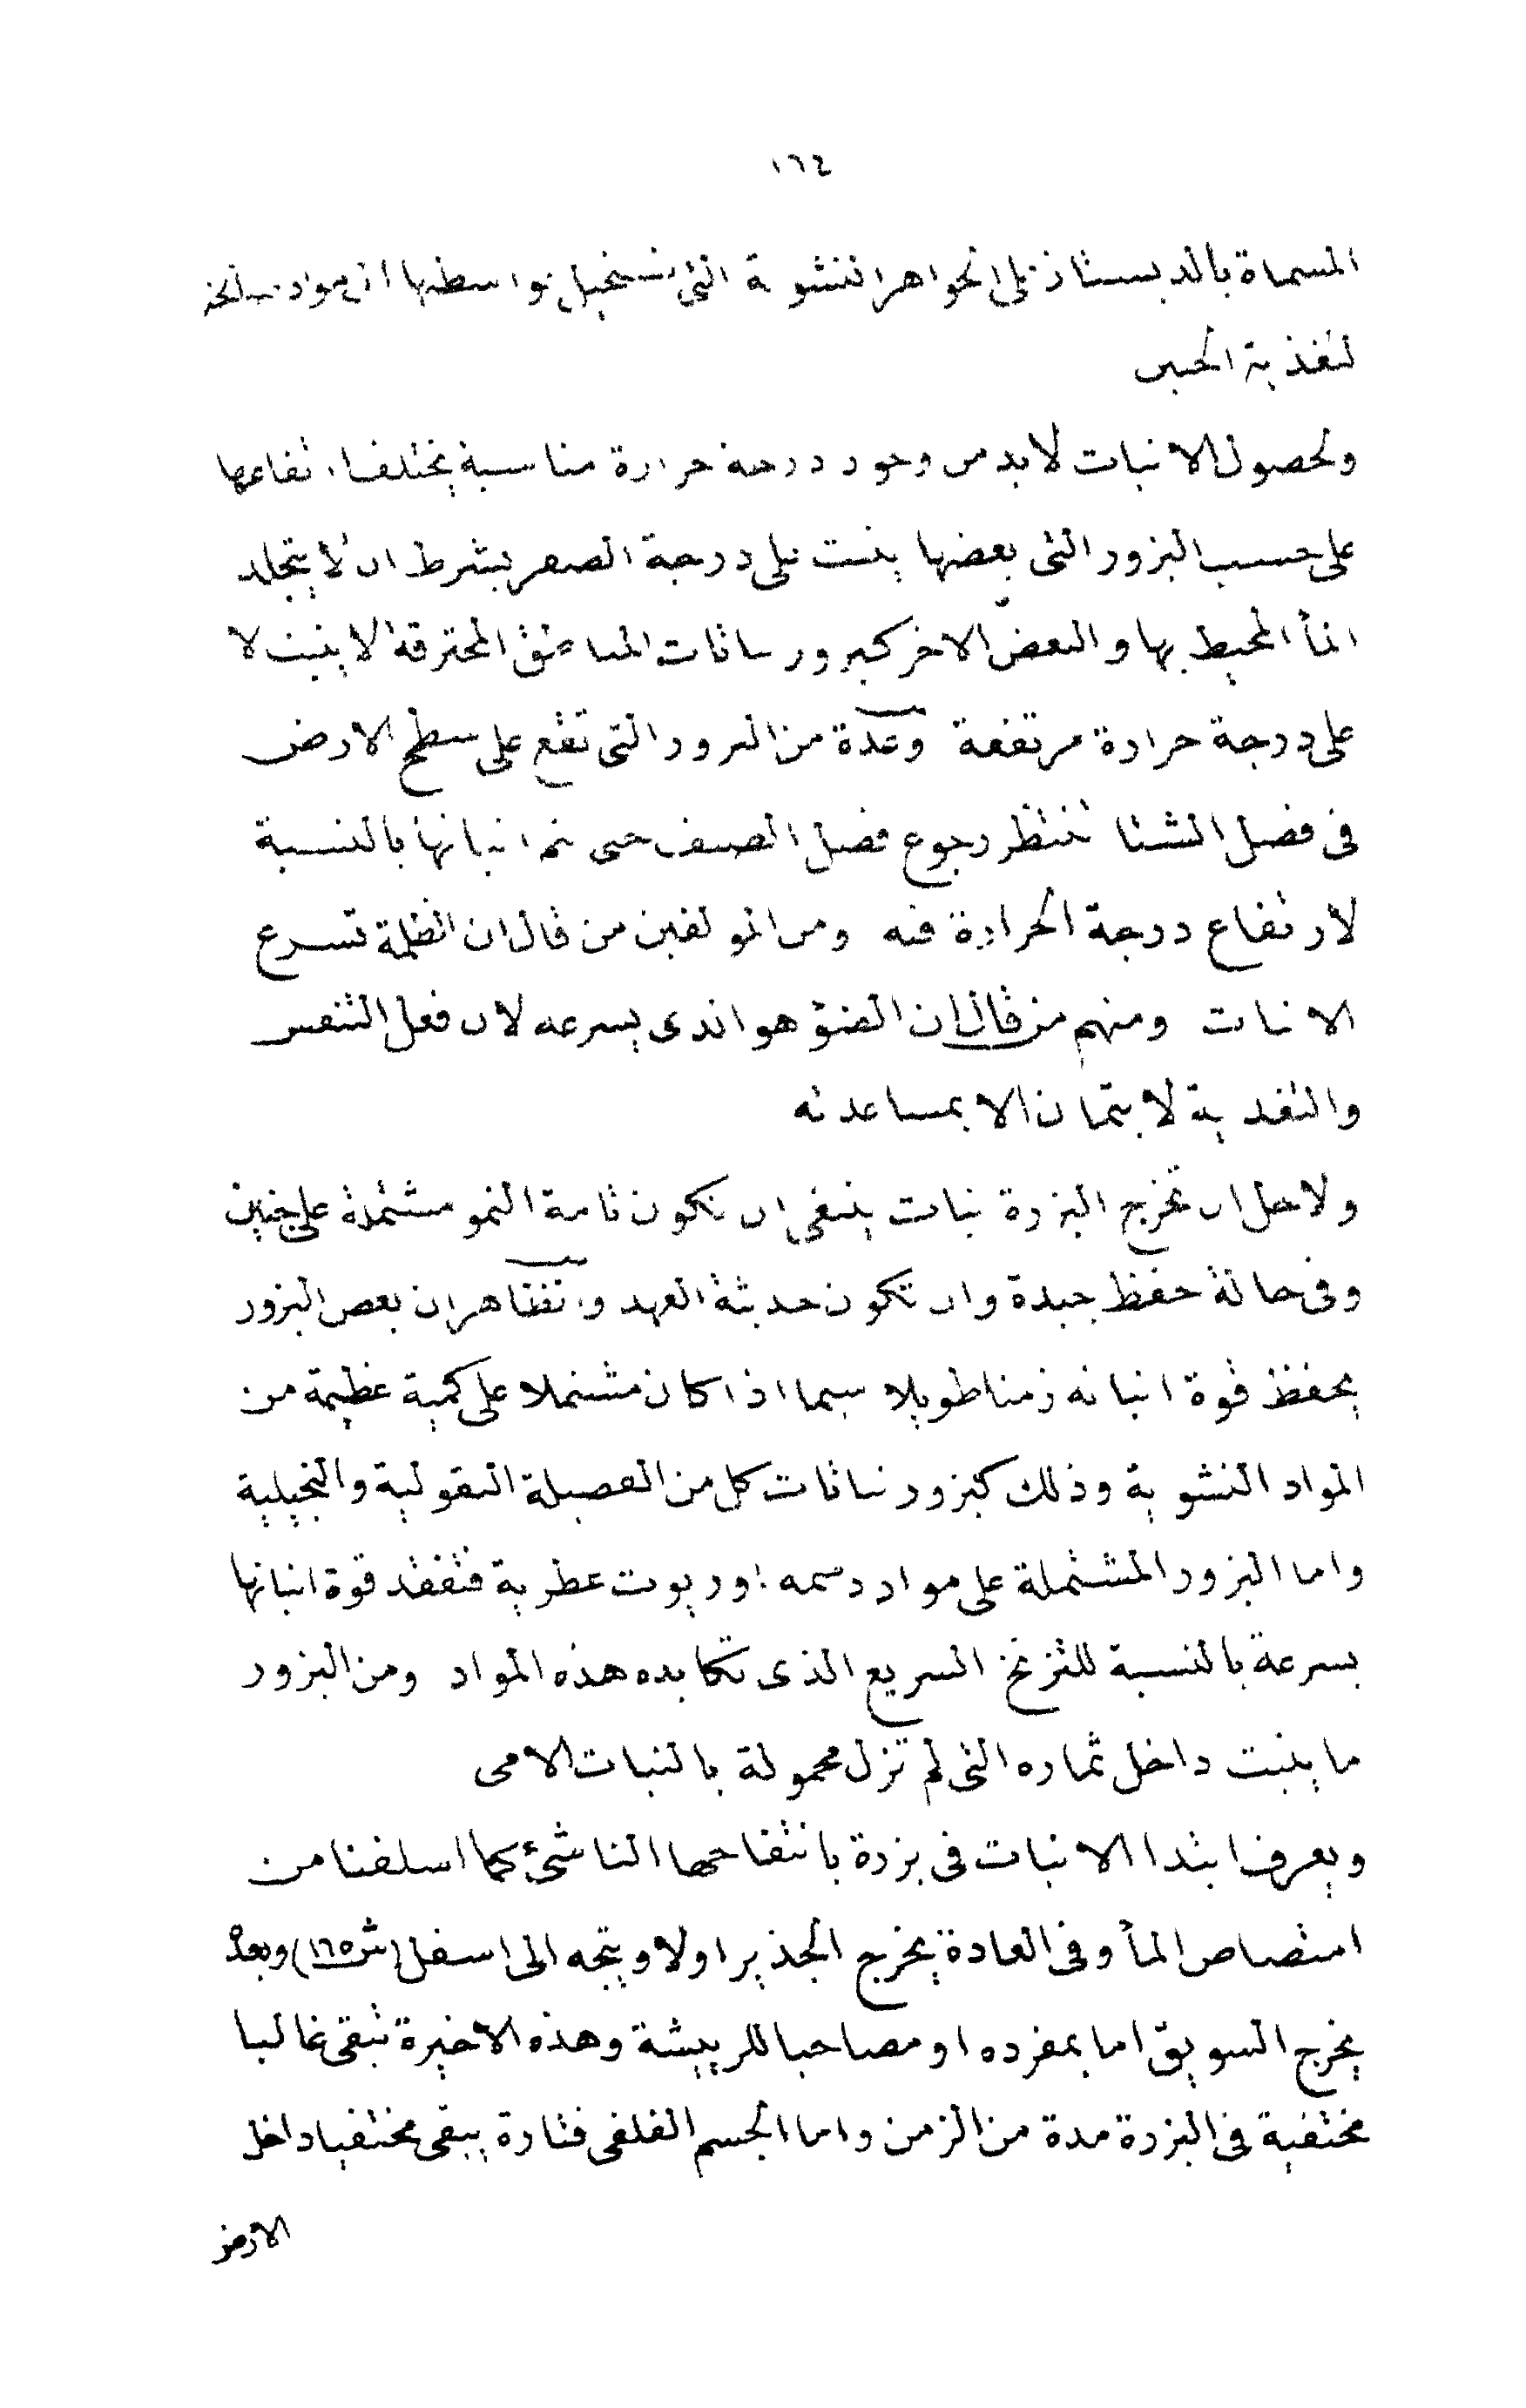 ١٦٤
المسماة بالديستاز على الجواهر النشوية التى تستحيل بواسطتها الى مواد صالحة
لتغذية الجنين
ولحصول الانبات لابد من وجود درجة حرارة مناسبة يختلف ارتفاعها
على حسب البزور التى بعضها ينبت على درجة الصفر بشرط ان لا يتجلد
المأ المحيط بها والبعض الاخر كبزور نباتات المناطق المحترقة لا ينبت الا
على درجة حرارة مرتفعة وعدة من البزور التى تقع على سطح الارض
فى فصل الشتا تنتظر رجوع فصل الصيف حتى يتم انباتها بالنسبة
لارتفاع درجة الحرارة فيه ومن المولفين من قال ان الظلمة تسرع
الانبات ومنهم من قال ان الضؤ هو الذى يسرعه لان فعل التنفس
والتغذية لا يتمان الا بمساعدته
ولاجل ان تخرج البزرة نبات ينبغى ان تكون تامة النمو مشتملة على جنين
وفى حالة حفظ جيدة وان تكون حديثة العهد والظاهر ان بعض البزور
يحفظ قوة انباته زمنا طويلا سيما اذا كان مشتملا على كمية عظيمة من
المواد النشوية وذلك كبزور نباتات كل من الفصيلة البقولية والنجيلية
واما البزور المشتملة على مواد دسمه او زيوت عطرية فتفقد قوة انباتها
بسرعة بالنسبة للتزنخ السريع الذى تكابده هذه المواد ومن البزور
ما ينبت داخل ثماره التى لم تزل محمولة بالنبات الامى
ويعرف ابتدا الانبات فى بزرة بانتفاخها الناشئ كما اسلفنا من
امتصاص المأ وفى العادة يخرج الجذير اولا ويتجه الى اسفل (ش ١٦٥) وبعده
يخرج السويق اما بمفرده او مصاحبا للرييشة وهذه الاخيرة تبقى غالبا
مختفية فى البزرة مدة من الزمن واما الجسم الفلقى فتارة يبقى مختفيا داخل
الارض